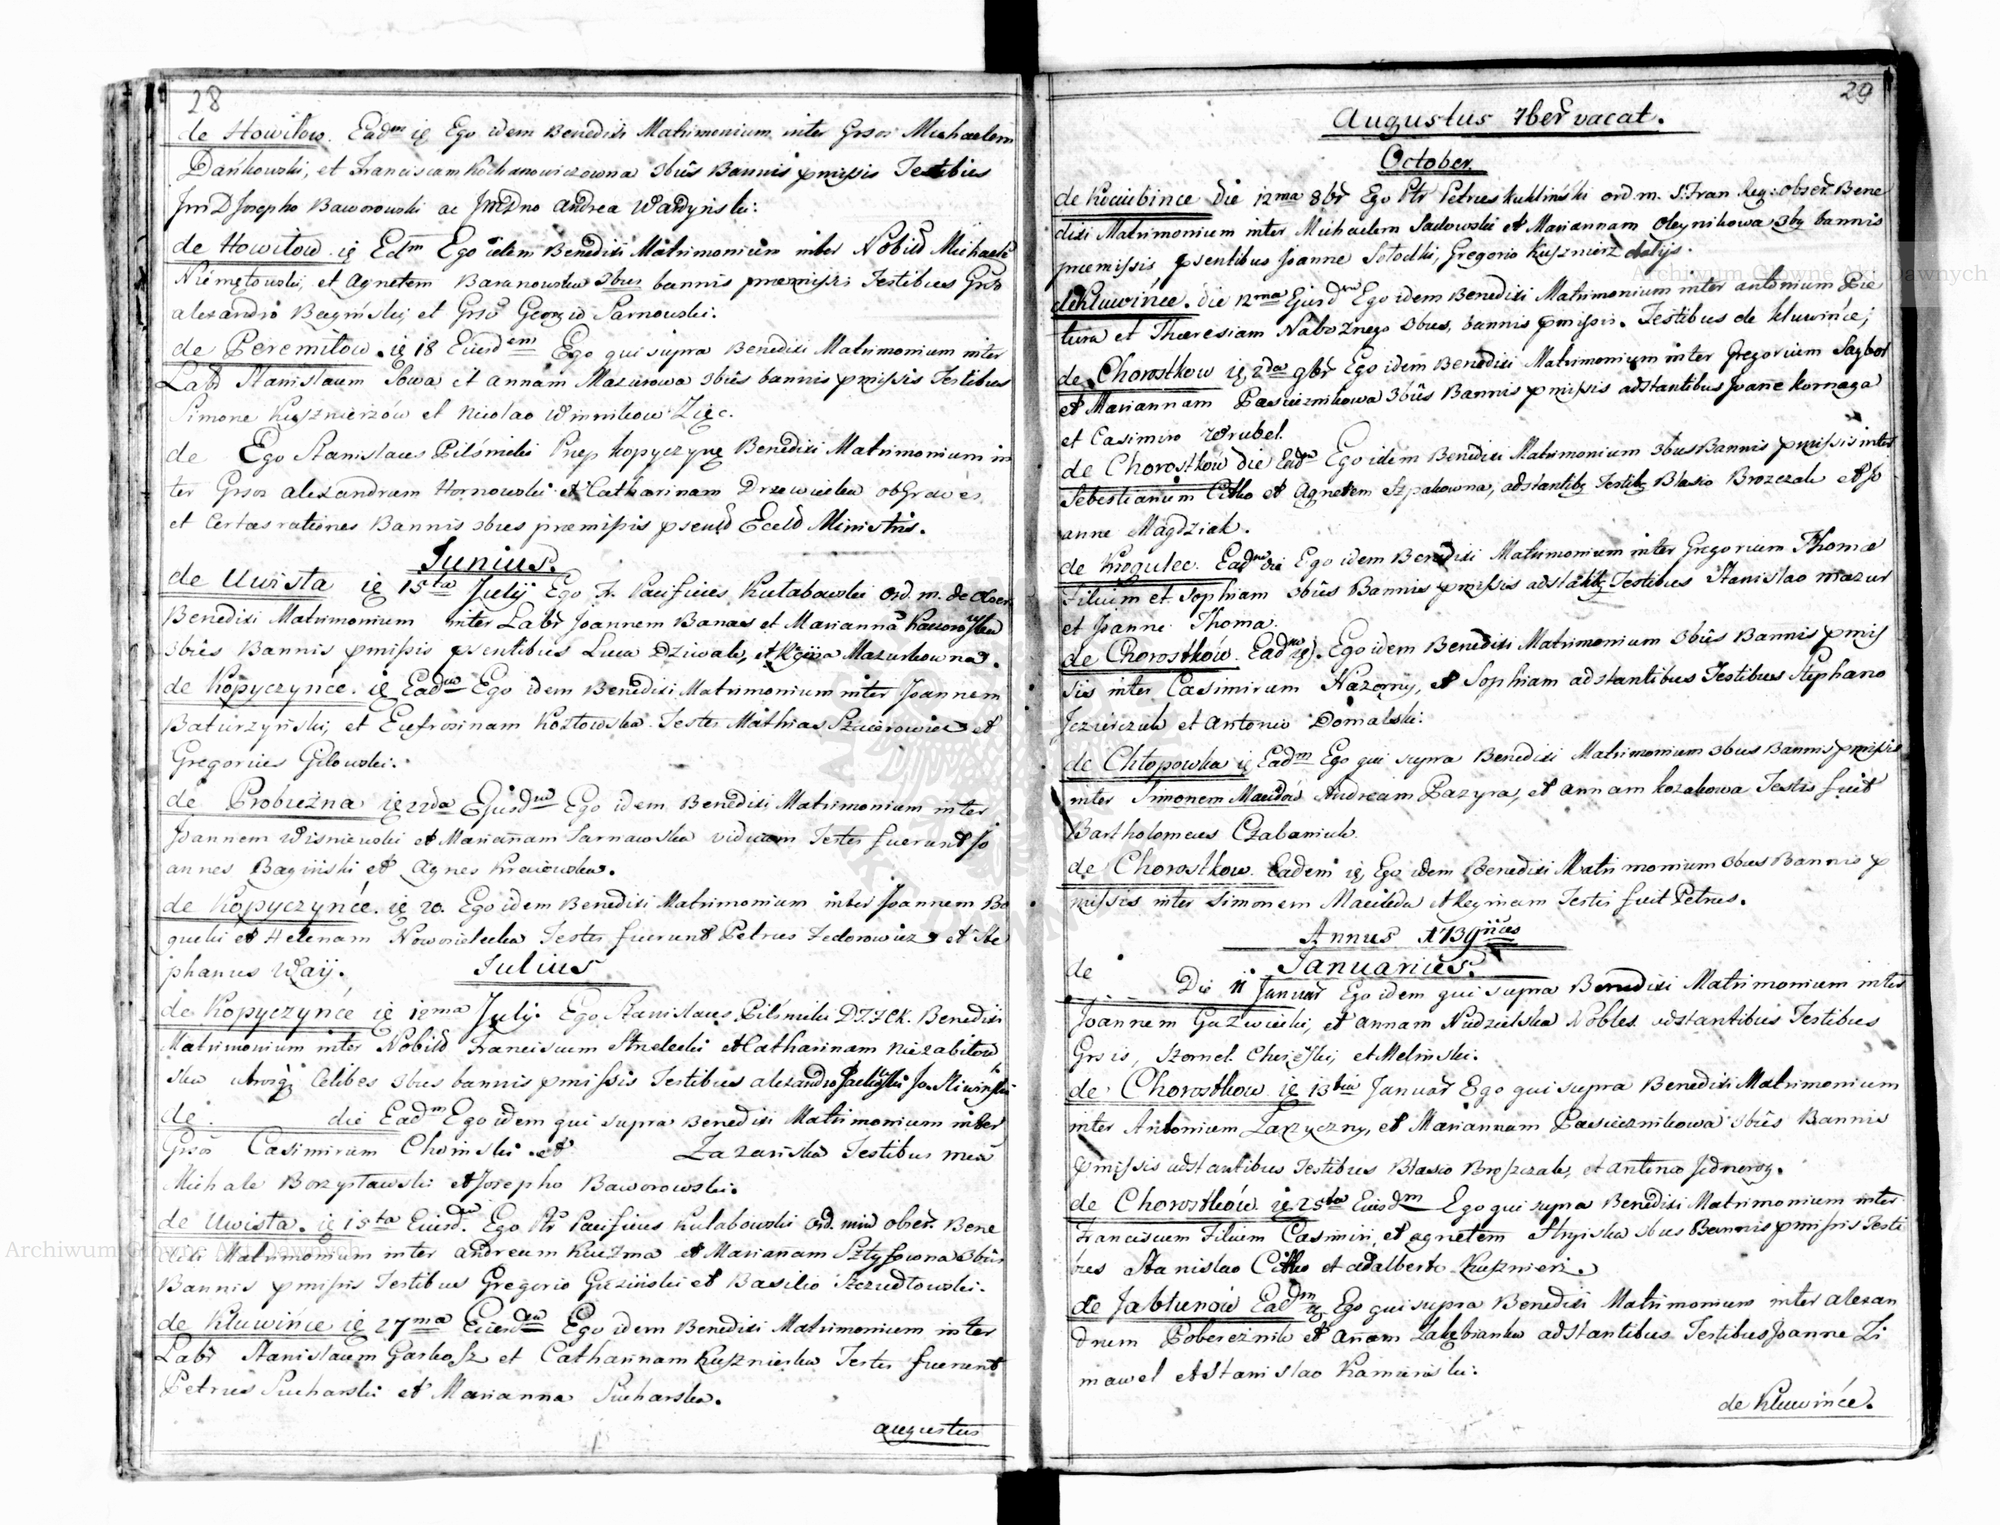 28
de Howitow. Eadm ię Ego idem Benedixi Matrimonium inter Grsos Michaelem
Dańkowski, et Franciscam Kochanowiczowna 3bûs Bannis pmissis Testibus
JmD Josepho Baworowski ac JmDno Andrea Wardyński:
de Howitow. ię Edm Ego idem Benedixi Matrimonium inter Nobild Michaele
Niemętowski, et Agnetem Baranowska 3bus bannis praemissis Testibus Grso
alexandro Bagyński, et Grso Georgio Sarnowski.
de Peremitow. ię 18 Eiusdem Ego qui supra Benedixi Matrimonium inter
Labr Stanislaum Sowa et annam Mazurowa 3bûs bannis pmissis Testibus
Simone Kusznierzów et Nicolao Winnikow Zięc.
de Ego Stanislaus Pilśnicki Prep Kopyczynę Benedixi Matrimonium in
ter Grsos alexandrum Hornowski et Catharinam Drzewiecka ob Graves
et Certas rationes Bannis 3bus praemissis psentd Eccld Ministris.
Junius.
de Uwista ię 15ta Julij Ego Fr. Pacificus Kulabowski Ord. m. de Obser.
Benedixi Matrimonium inter Labr Joannem Banas et Marianna
3bûs Bannis pmissis psentibus Luca Dziwak, et Regina Mazurkowna.
de Kopyczynce. ię Eadm Ego idem Benedixi Matrimonium inter Joannem
Baturzyński, et Eufrosinam Kozłowska. Testes Mathias Szwerowicz et
Gregorius Giłowski.
de Probuzna ię 22da Ejusdm Ego idem Benedixi Matrimonium inter
Joannem Wisniewski et Mariannam Sarnawska viduam Testes fuerunt Jo
annes Baginski et Agnes Kraiewska.
de Kopyczyncé. ię 20. Ego idem Benedixi Matrimonium inter Joannem Bo
gucki et Helenam Nowosielecka Testes fuerunt Petrus Fedorowicz et Ste
phanus Way.
Julius
de Kopyczyncé ię 12ma Julij. Ego Stanislaus Pilśnicki D.F.F.C.K. Benedixi
Matrimonium inter Nobild Franciscum Strelecki et Catharinam Niezabitow
ska utrosq Celibes 3bus bannis pmissis Testibus alexandro
de. die Eadm Ego idem qui supra Benedixi Matrimonium inter
Grsos Casimirum Choinski. et Zazańska Testibus mea
Michale Borzysławski et Josepho Baworowski.
de Uwista. ię 15ta Eiusd. Ego Ptr Pacificus Kulabowski Ord. min obser. Bene
dixi Matrimonium inter andream Kuzma et Marianam Sztyfowna 3bûs
Bannis pmissis Testibus Gregorio Guziński et Basilio Szczudłowski.
de Kluwińce ię 27ma Eiusdem Ego idem Benedixi Matrimonium inter
Labr Stanislaum Garkosz et Catharinam Kusznierka Testes fuerunt
Petrus Sucharski et Marianna Sucharska.
augustus
29
Augustus 7ber vacat.
October
de Kociubince Die 12ma 8br Ego Ptr Petrus Kukliński ord m. S. Fran Reg: obser. Bene
dixi Matrimonium inter Michaelem Sadowski et Mariannam Oleynikowa 3bg bannis
praemissis psentibus Joanne Sołodki, Gregorio Kusznierz et alijs.
de Kluwińce. die 12ma Ejusdm Ego idem Benedixi Matrimonium inter antonium Pie
tura et Theresiam Naboznego 3bus. bannis pmissis. Testibus de Kluwińce;
de Chorostkow ię 2da 9br Ego idem Benedixi Matrimonium inter Gregorium Saybot
et Mariannam Pasiecznikowa 3bûs Bannis pmissis adstantibus Joane Kornaga
et Casimiro Wrubel.
de Chorostkow die Eadm Ego idem Benedixi Matrimonium 3bus Bannis pmissis inter
Sebestianum Citko et Agnetem Szpakowna, adstantibg Testibg Blasio Brozczak et Jo
anne Magdziak.
de Krogulec. Eadm die Ego idem Benedixi Matrimonium inter Gregorium Thomae
Filium et Sophiam 3bûs Bannis pmissis adstantbg Testibus Stanislao mazur
et Joanne Thoma.
de Chorostków. Eadm ię). Ego idem Benedixi Matrimonium 3bûs Bannis pmis
sis inter Casimirum Nazorny, et Sophiam adstantibus Testibus Stephano
Jczierczuk et Antonio Domalski.
de Chłopowka ię Eadm Ego qui supra Benedixi Matrimonium 3bus Bannis pmissis
inter Simonem Andream Pazyra, et annam kozakowa Testis fuit
Bartholomaeus Czabaniuk.
de Chorostkow. Eadem ię Ego idem Benedixi Matrimonium 3bus Bannis p
missis inter Simonem Macieda et Reginam Testis fuit Petrus.
Annus 1739nus
Januarius.
de Die 11 Januar Ego idem qui supra Benedixi Matrimonium inter
Joannem Guzwiecki, et annam Nudzielska Nobles. adstantibus Testibus
Grsis, Szornel Chczeski, et Melinski.
de Chorostkow ię 13tia Januar Ego qui supra Benedixi Matrimonium
inter Antonium Zarzyczny, et Mariannam Pasiecznikowa 3bûs Bannis
pmissis adstantibus Testibus Blasio Broszczak, et antonio Jednorog.
de Chorostków. ię 25ta Eiusdm Ego qui supra Benedixi Matrimonium inter
Franciscum Filium Casimiri, et agnetem Stryiska 3bus Bannis pmissis Testi
bus Stanislao Citko et adalberto Kusznierz.
de Jabłunów Eadm ię Ego qui supra Benedixi Matrimonium inter alexan
drum Pobereżnik et Anam Załębianka adstantibus Testibus Joanne Zi
mawel et Stanislao Kaminski.
de Kluwińce.
Archiwum Główne Akt Dawnych
Archiwum Główne Akt Dawnych